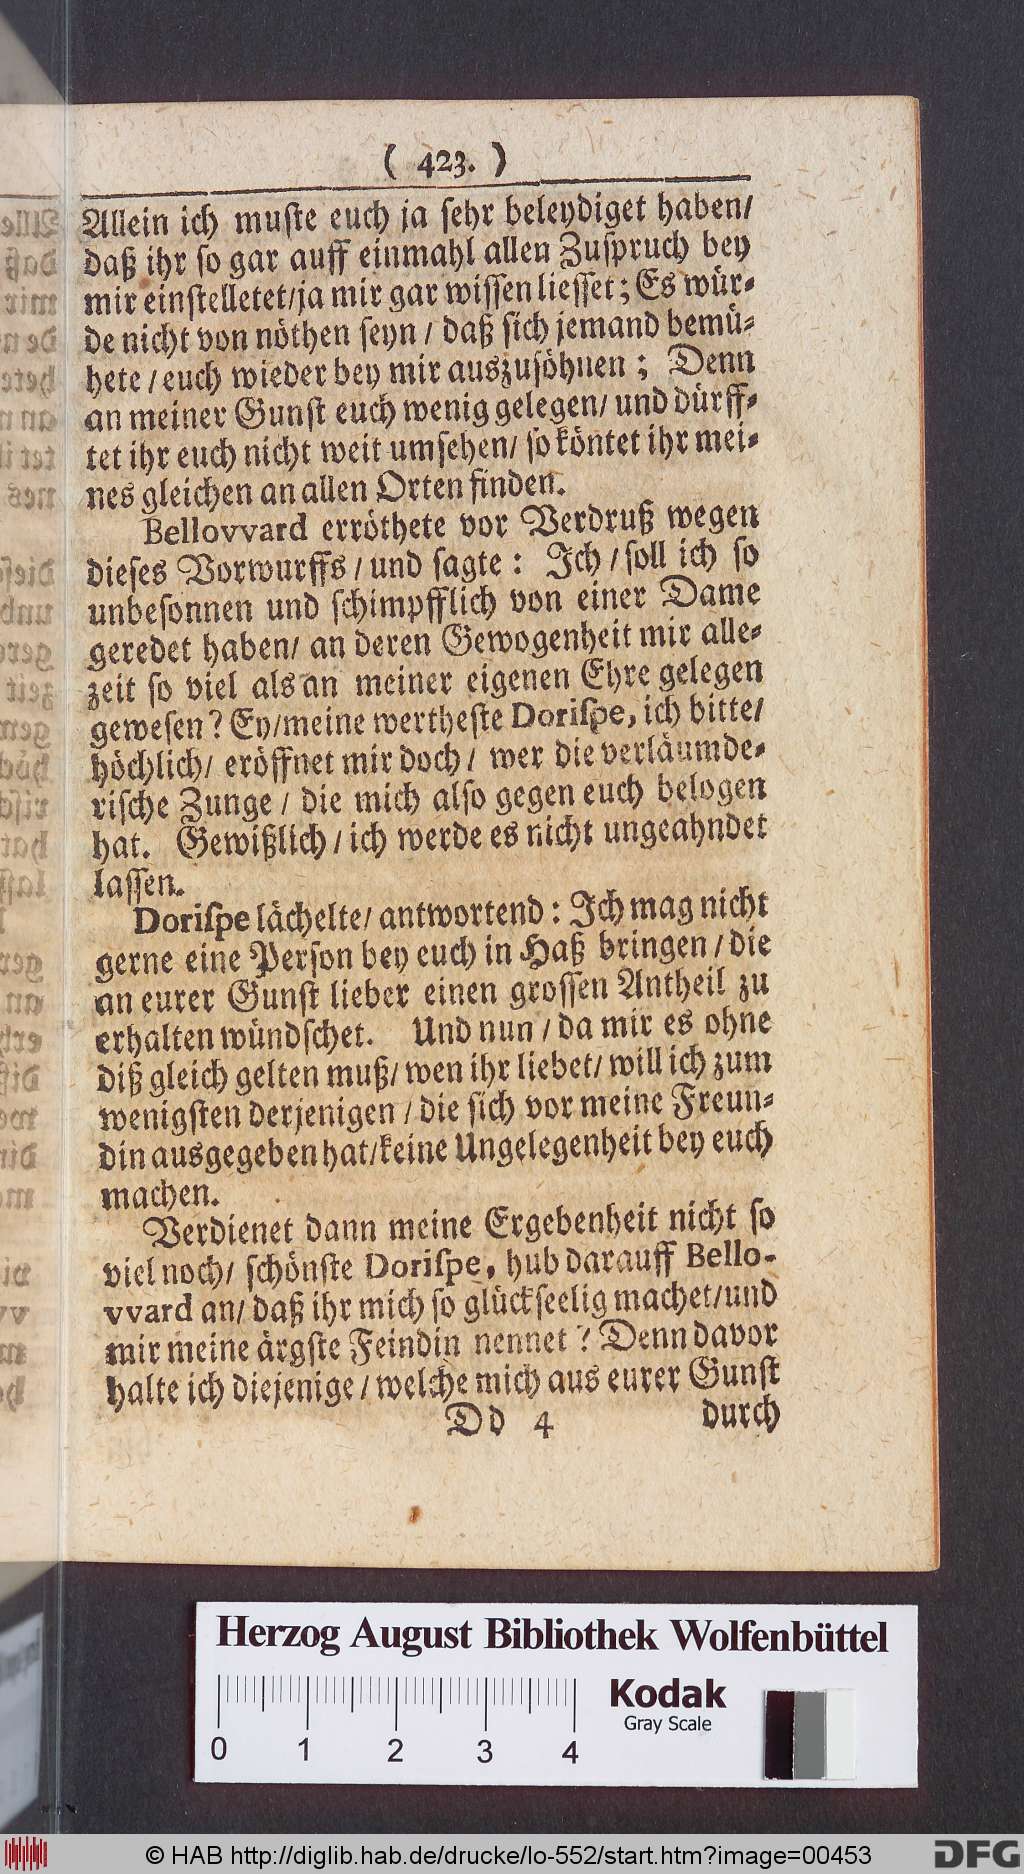 ( 423. )
Allein ich muſte euch ja ſehr beleydiget haben/
daß ihr ſo gar auff einmahl allen Zuſpruch bey
mir einſtelletet/ja mir gar wiſſen lieſſet; Es wür-
de nicht von nöthen ſeyn / daß ſich jemand bemü-
hete / euch wieder bey mir auszuſöhnen ; Denn
an meiner Gunſt euch wenig gelegen/ und dürff-
tet ihr euch nicht weit umſehen/ ſo köntet ihr mei-
nes gleichen an allen Orten finden.
Bellovvard erröthete vor Verdruß wegen
dieſes Vorwurffs / und ſagte : Ich / ſoll ich ſo
unbeſonnen und ſchimpfflich von einer Dame
geredet haben/ an deren Gewogenheit mir alle-
zeit ſo viel als an meiner eigenen Ehre gelegen
geweſen ? Ey/meine wertheſte Doriſpe, ich bitte/
höchlich/ eröffnet mir doch / wer die verläumde-
riſche Zunge / die mich alſo gegen euch belogen
hat. Gewißlich / ich werde es nicht ungeahndet
laſſen.
Doriſpe lächelte/ antwortend : Ich mag nicht
gerne eine Perſon bey euch in Haß bringen / die
an eurer Gunſt lieber einen groſſen Antheil zu
erhalten wündſchet. Und nun / da mir es ohne
diß gleich gelten muß/ wen ihr liebet/ will ich zum
wenigſten derjenigen / die ſich vor meine Freun-
din ausgegeben hat/keine Ungelegenheit bey euch
machen.
Verdienet dann meine Ergebenheit nicht ſo
viel noch/ ſchönſte Doriſpe, hub darauff Bello-
vvard an/ daß ihr mich ſo glückſeelig machet/und
mir meine ärgſte Feindin nennet ? Denn davor
halte ich diejenige / welche mich aus eurer Gunſt
Dd 4 durch
Herzog August Bibliothek Wolfenbüttel
Kodak
Gray Scale
0 1 2 3 4
© HAB http://diglib.hab.de/drucke/lo-552/start.htm?image=00453
DFG